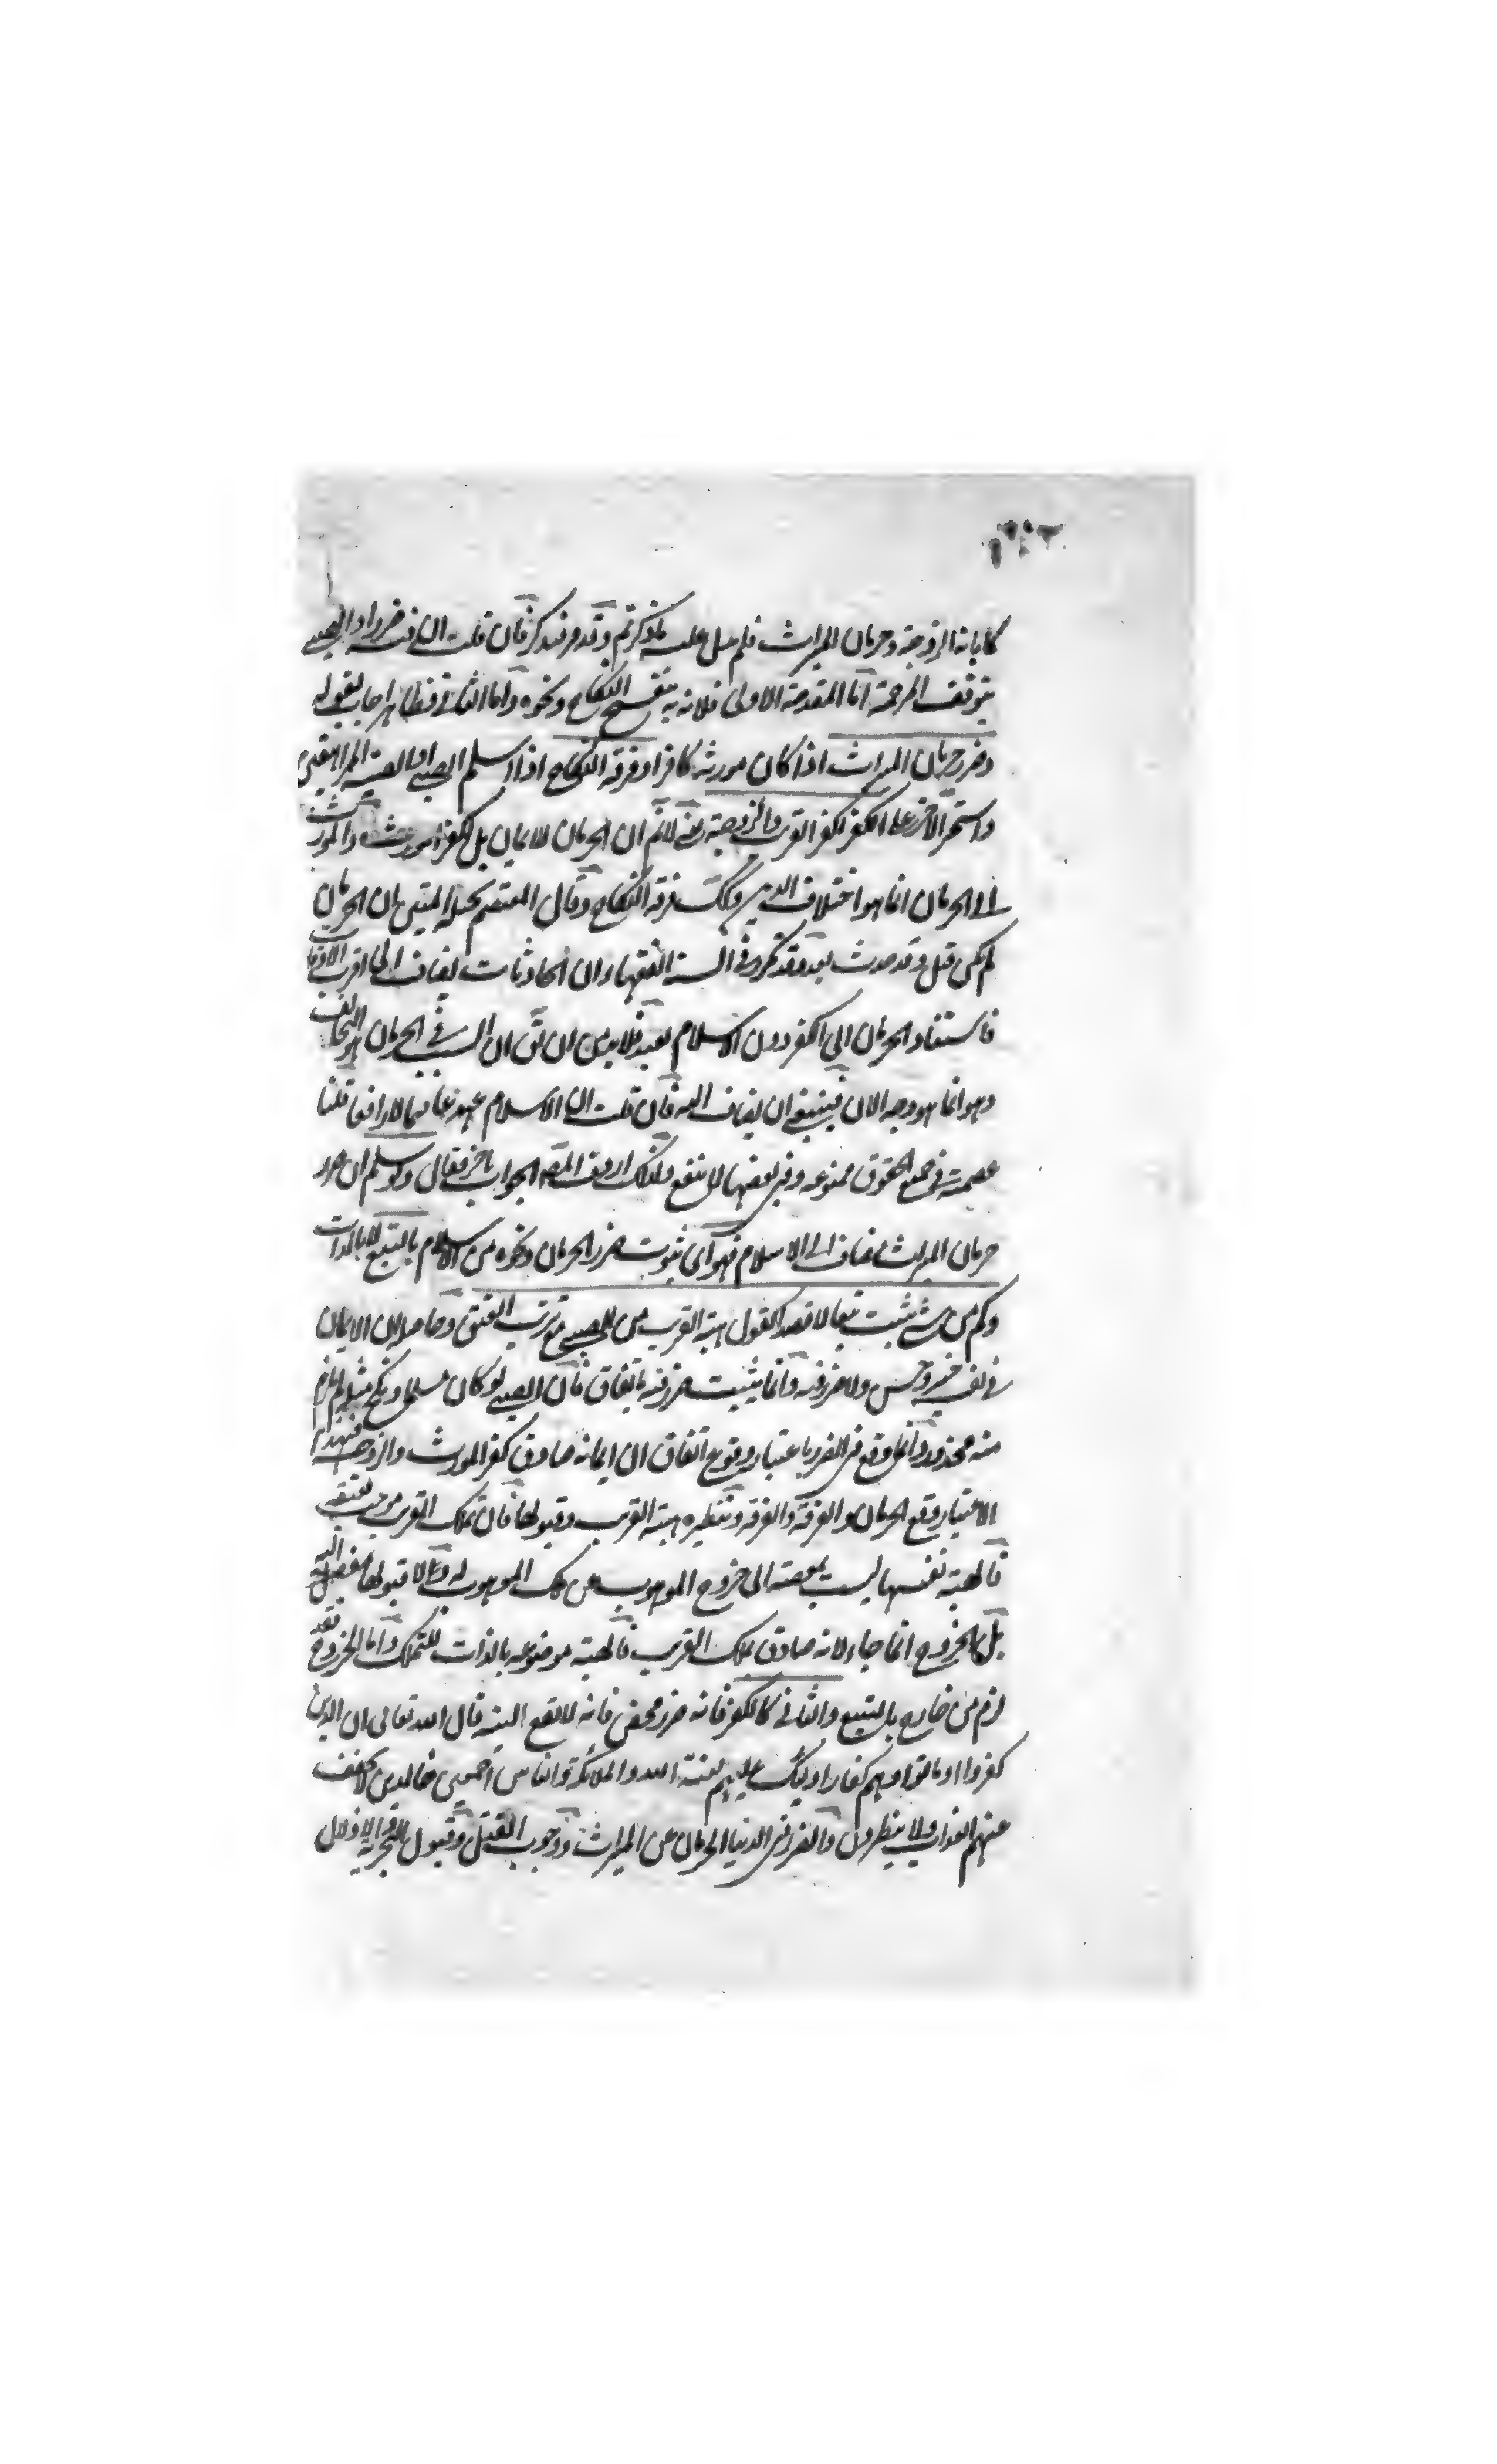 كابانة الزوجة وحرمان الميراث فلم عليه ما ذكرتم وقد فان قلت ان فيه ضررا والصبي
يتوقف المرحمة اما المقدمة الاولى فلانه به ينفسخ النكاح ونحوه واما الثانى فظاهر اجاب بقوله
وضرر حرمان الميراث اذا كان مورثه كافرا وفرقة النكاح اذا اسلم الصبي او الصبية
واستمر الاخر على الكفر لكفر القريب والزوجة يعنى لانم ان الحرمان للايمان بل لكفر المورث والمورث
الى الحرمان انما هو اختلاف الدين وكك فرقة النكاح وقال المعتصم بحبله المتين بان الحرمان
لم يكن قبل وقد حدث بعد وقد تكرر فى السنة الفقهاء ان الحادثات يضاف الى اقرب الاوقات
فاستناد الحرمان الى الكفر دون الاسلام بعيد فلا بد من ان يق ان السبب فى الحرمان هو التخالف
وهو انما هو وجد الان فينبغى ان يضاف اليه فان قلت ان الاسلام عهد عاصما لا رافعا قلنا
عصمته فى جميع الحقوق ممنوعه وفى بعضها لا ينفع ولذلك اردف المصه الجواب باخر فقال ولو سلم ان ضرر
حرمان الميراث مضاف الى الاسلام فهو اى ثبوت ضرر الحرمان ونحوه من الاسلام بالتبع لا بالذات
وكم من شئ يثبت تبعا لا قصدا كقبول هبة القريب من الصبي مع ترتب العتق وحاصله ان الايمان
فى نفسه خير وحسن ولا ضرر فيه وانما يثبت ضرر فيه باتفاق فان الصبي لو كان مسلما ونكح مثله لم يلزم
منه محذور وانما وقع فى الضرر باعتبار وقوع اتفاق ان ايمانه صادف كفر المورث والزوجه فبهذا
الاعتبار وقع الحرمان والفرقة ونظيره هبة القريب وقبولها فان تملك القريب موجب لعتقه
فالهبة نفسها ليست بمفضية الى خروج الموهوب عن ملك الموهوب له ولا قبولها مفض اليه
بل الخروج انما جاء لانه صادف ملك القريب فالهبة موضوعه بالذات للتملك واما الخروج فقد
لزم من خارج بالتبع والثانى كالكفر فانه ضرر محض فانه لا يقع البته قال الله تعالى ان الذين
كفروا وماتوا وهم كفار اولئك عليهم لعنة الله والملائكة والناس اجمعين خالدين لا يخفف
عنهم العذاب ولا ينظرون والضرر فى الدنيا الحرمان عن الميراث ووجوب القتل وقبول الجزية والاذلال